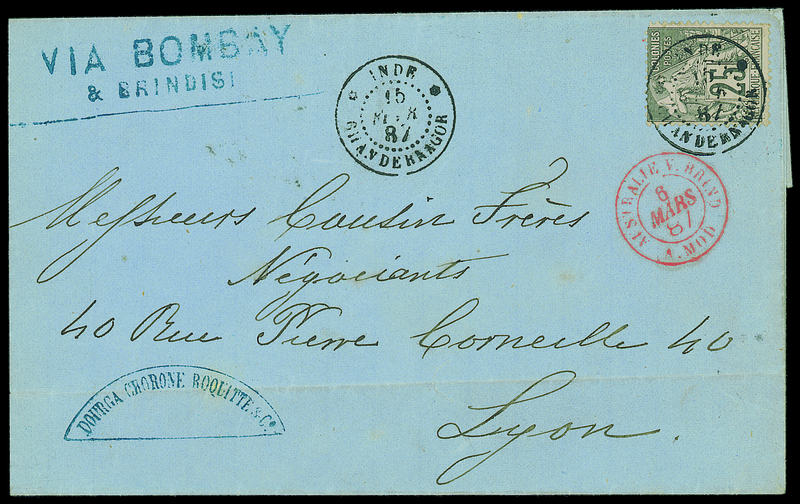 VIA BOMBAY
& BRINDISI
INDE
15
FEVR
87
CHANDERNAGOR
COLONIES
POSTES
25
INDE
15
87
CHANDERNAGOR
AUSTRALIE V. BRIND
6
MARS
87
A. MOD
Messieurs Cousin Frères
Négociants
40 Rue Pierre Corneille 40
Lyon.
DOURGA CHORONE ROQUITTE & Co.